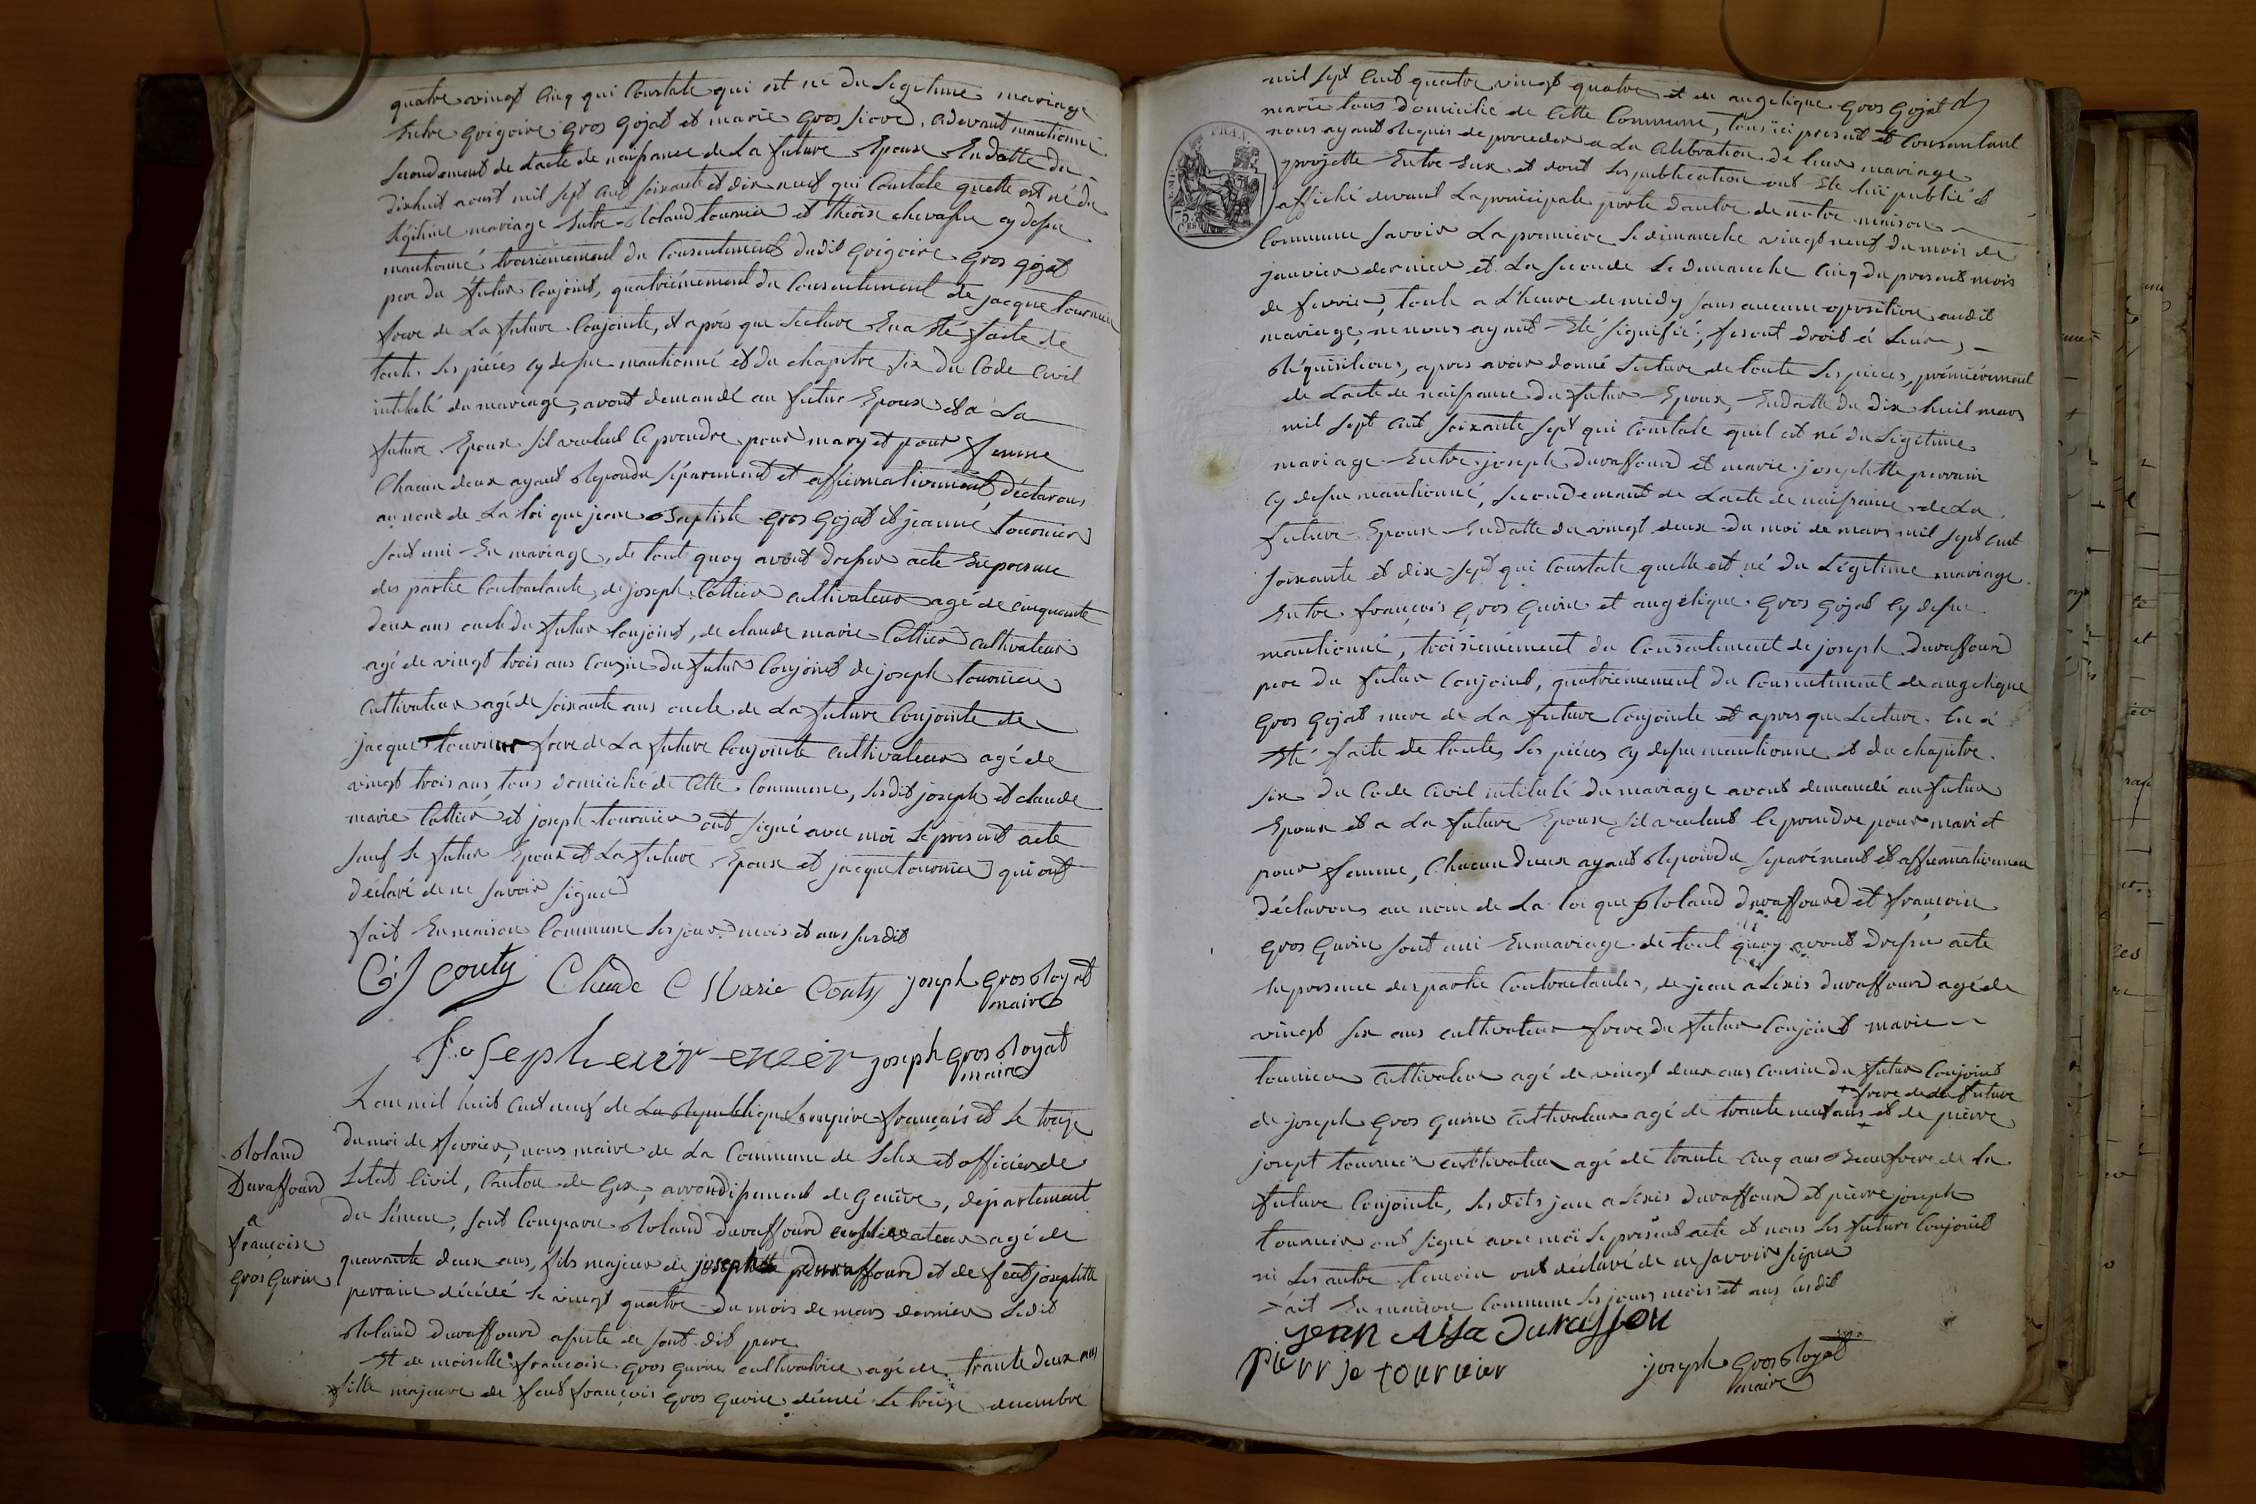 quatre vingt cinq qui Constate qui est né du Legitime mariage
Entre grégoire gros gojat et marie gros , ci devant mantionné
secondement de Lacte de naissance de La future Epouse Endatte du
dixhuit aoust mil sept cent soixante et dix neuf qui Constate quelle est né du
légitime mariage Entre Roland tournier et therèse chevassu cy dessu
mantionné troisiemement du Consentement dudit grégoire gros gojat
pere du futur Conjoint, quatriémement du Consentement de jacque tournier
frere de La future Conjointe, et après que lecture En a Eté faite de
toute les pièces cy dessu mantionné et du chapitre six du Code Civil
intitulé du mariage, avont demandé au futur Epoux et a La
future Epouse sil veulent ce prendre pour mary et pour femme
Chacun deux ayant Repondu séparement et affirmativement, déclarons
au nom de La loi que jean Baptiste gros gojat et jeanne tournier
sont uni En mariage, de tout quoy avont dressée acte En presence
des partie Contractante, de joseph Cottier cultivateur agé de cinquante
deux ans oncle du futur Conjoint, de claude marie Cottier cultivateur
agé de vingt trois ans Cousin du futur Conjoint de joseph tournier
Cultivateur agé de soixante ans oncle de La future Conjointe de
jacque tournier frere de La future Conjointe cultivateur agé de
vingt trois ans, tous domicilié de Cette Commune, lesdit joseph et claude
marie Cottier et joseph tournier ont signé avec moi Le present acte
sauf Le futur Epoux et La future Epouse et jacque tournier qui ont
déclaré de ne savoir signer
fait En maison Commune les jour mois et ans susdit
Couty Claude C Marie Couty joseph gros Royat
maire
joseph gros Royat
maire
Lan mil huit cent neuf de La Republique Lempire français et le treize
du moi de fevrier, nous maire de La Commune de Lelex et officier de
Letat Civil, Canton de Gex, arrondissement de genève, département
du Léman, sont Comparu Roland Duraffourd cultivateur agé de
quarante deux ans, fils majeur de joseph duraffourd et de feut josephtte
perrain décédé Le vingt quatre du mois de mars dernier Ledit
Roland duraffourd assisté de sont dit pere
Et de moiselle françoise gros gurin cultivatrice agé de trante deux ans
fille majeure de feut françois gros gurin décedé Le treize decembre
Roland
Duraffourd
a
françoise
gros Gurin
mil sept cent quatre vingt quatre et de angelique gros gojat
marié tous domicilié de Cette Commune, tous ici present et Consantant
nous ayant Requis de proceder a La Celebration de leur mariage
projetté Entre Eux et dont les publication ont Eté lui publié et
affiché devant La principale porte dantré de notre maison
Commune savoir La premiere Le dimanche vingt neuf du mois de
janvier dernier et La seconde Le dimanche cinq du present mois
de fevrier, toute a L'heure de midy sans aucune oposition audit
mariage, ne nous ayant Eté signifié, fesant droit à Leurs
Réquisitions, apres avoir donné Lecture de toute les pièces, prémiérement
de Lacte de naissance du futur Epoux, Endatte du dix huit mars
mil sept cent soixante sept qui Constate quil est né du Légitime
mariage Entre joseph duraffourd et marie josephtte perrain
cy dessu mantionné, secondement de Lacte de naissance de La
future Epouse Endatte du vingt deux du moi de mars mil sept cent
soixante et dix sept qui Constate quelle est né du Légitime mariage
Entre françois gros gurin et angélique gros gojat cy dessu
mantionné, troisiémement du Consentement de joseph duraffourd
pere du futur Conjoint, quatriémement du Consentement de angelique
gros gojat mere de La future Conjointe et apres que Lecture En à
Eté faite de toutes les pièces cy dessu mantionné et du chapitre
six du Code Civil intitulé du mariage avont demandé au futur
Epoux et a La future Epouse sil veulent ce prendre pour mari et
pour femme, Chacun deux ayant Repondu séparément et affirmativement
déclarons au nom de La loi que Roland duraffourd et françoise
gros gurin sont uni En mariage de tout quoy avont dressé acte
En presence des partie Contractantes, de jean aLexis duraffourd agé de
vingt six ans cultivateur frere du futur Conjoint marie
tournier cultivateur agé de vingt deux ans Cousin du futur Conjoint
+ frere de La future
de joseph gros gurin cultivateur agé de trante neuf ans + et de pierre
josept tournier cultivateur agé de trante cinq ans Beaufrere de La
future Conjointe, Les dits jean aLexis duraffourd et pierre joseph
tournier ont signé avec moi Le present acte et nous Les futurs Conjoint
ni Les autre temoin ont déclaré de ne savoir signer
Fait En maison Commune Les jours mois et ans susdit
jean Durassou
pierr je tournier
joseph gros Royat
maire